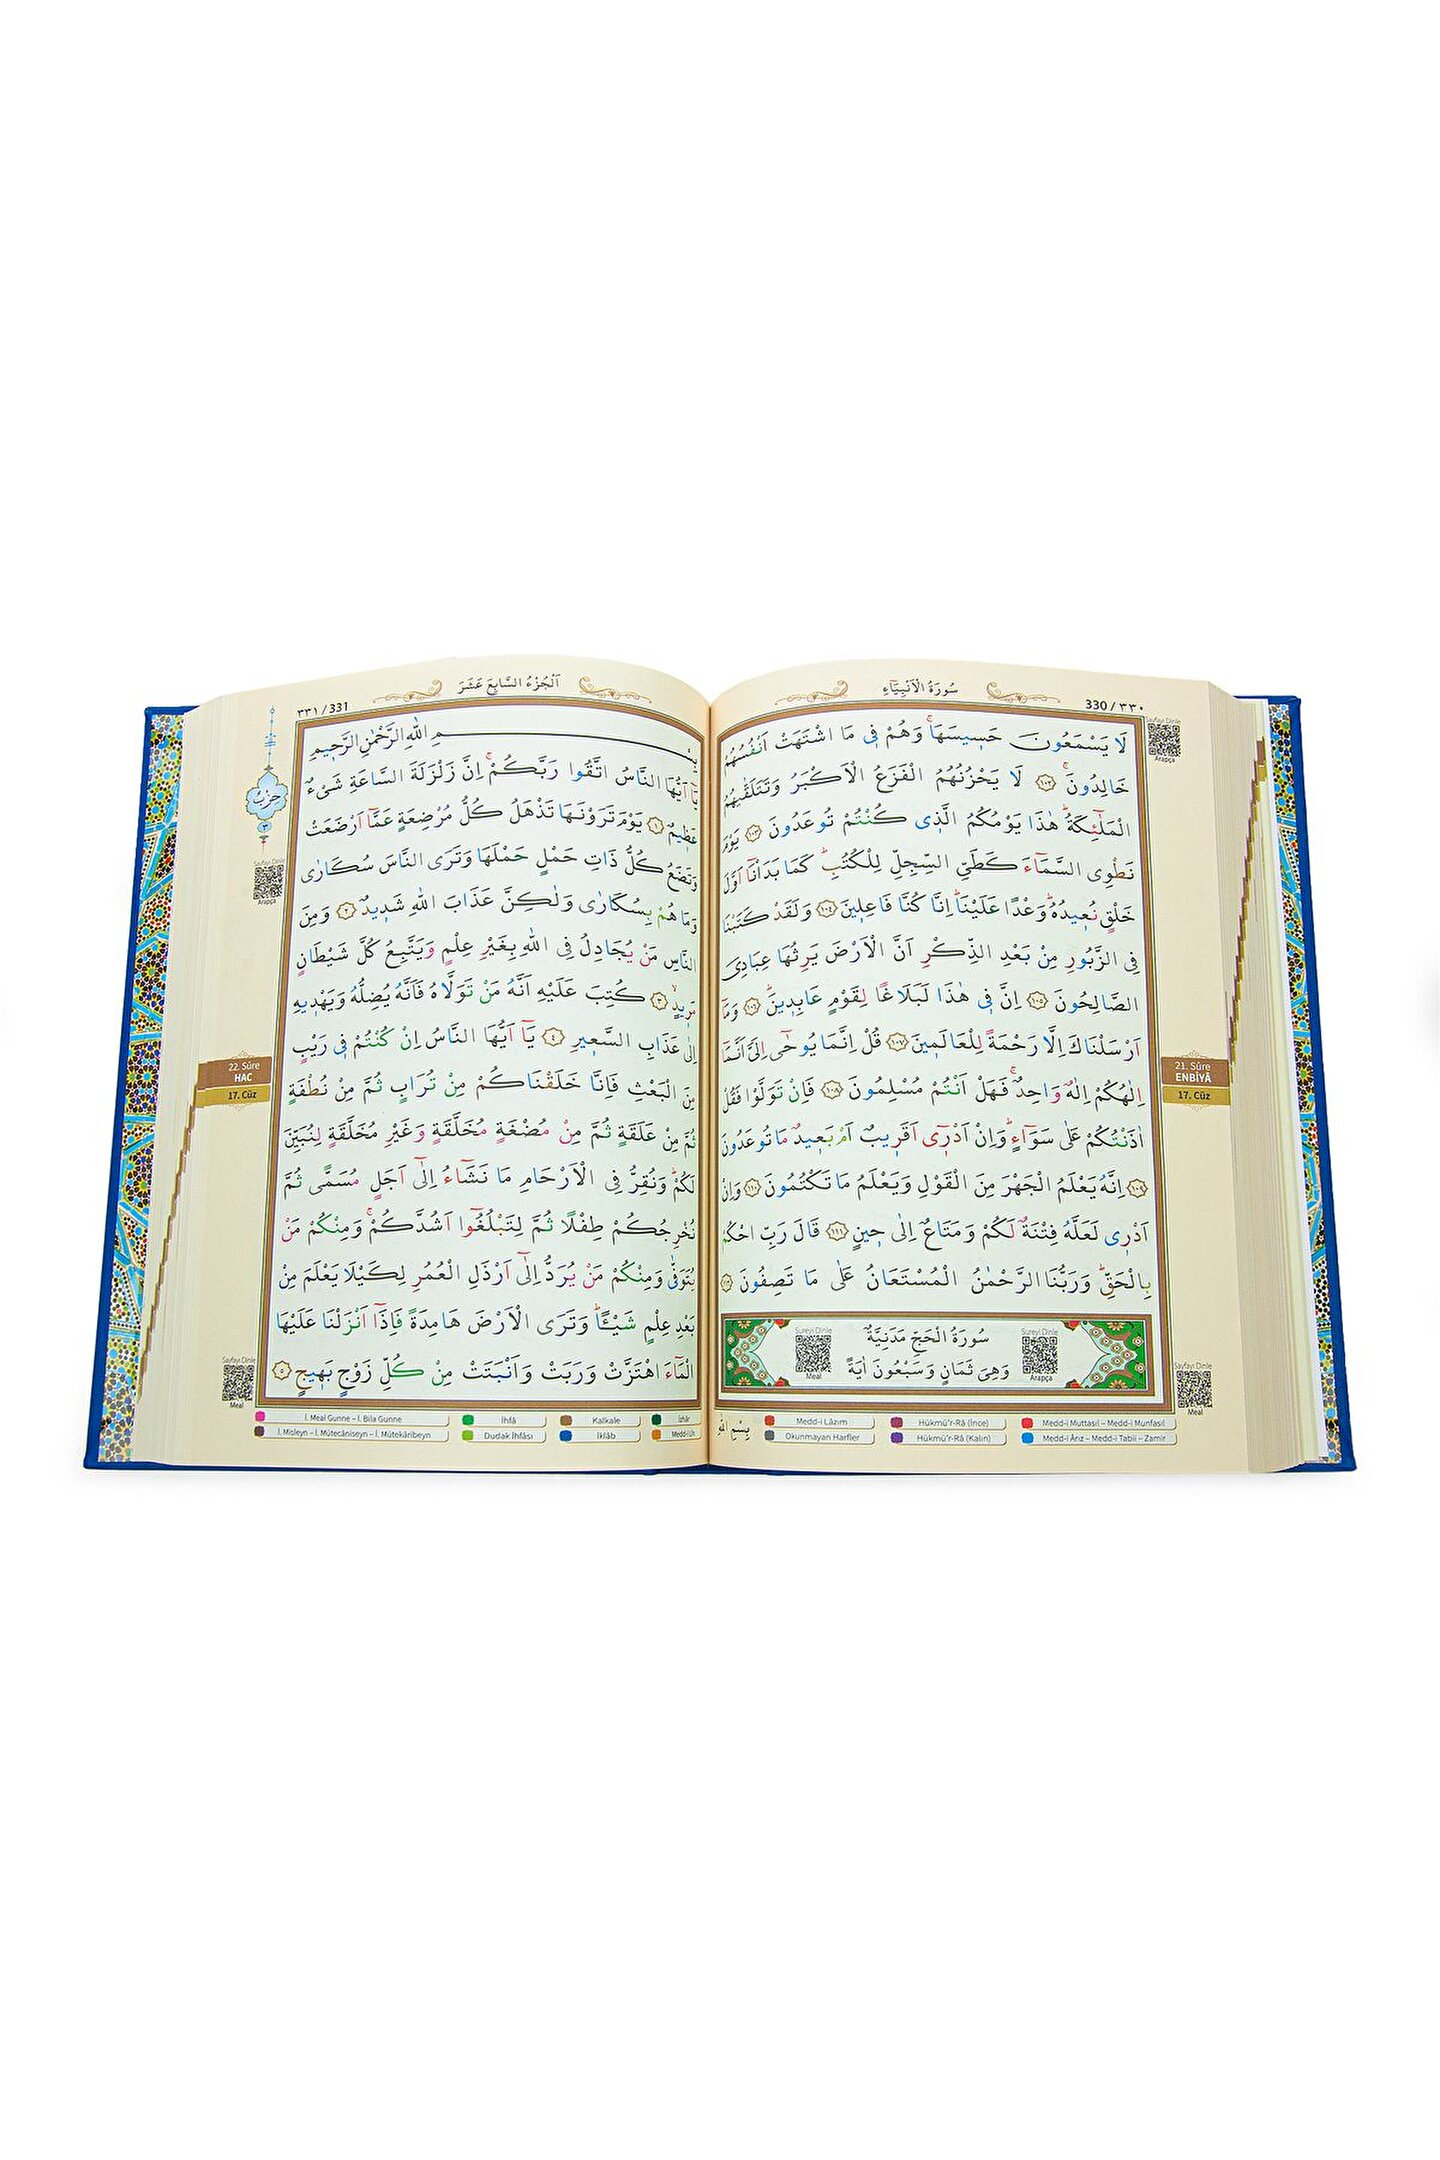 سُورَةُ الْاَنْبِيَٓاءِ
330 / ٣٣٠
لَا يَسْمَعُونَ حَسٖيسَهَاۚ وَهُمْ فٖي مَا اشْتَهَتْ اَنْفُسُهُمْ
خَالِدُونَۚ ١٠٢ لَا يَحْزُنُهُمُ الْفَزَعُ الْاَكْبَرُ وَتَتَلَقّٰيهُمُ
الْمَلٰٓئِكَةُؕ هٰذَا يَوْمُكُمُ الَّذٖي كُنْتُمْ تُوعَدُونَ ١٠٣ يَوْمَ
نَطْوِي السَّمَٓاءَ كَطَيِّ السِّجِلِّ لِلْكُتُبِؕ كَمَا بَدَاْنَٓا اَوَّلَ
خَلْقٍ نُعٖيدُهُؕ وَعْدًا عَلَيْنَاؕ اِنَّا كُنَّا فَاعِلٖينَ ١٠٤ وَلَقَدْ كَتَبْنَا
فِي الزَّبُورِ مِنْ بَعْدِ الذِّكْرِ اَنَّ الْاَرْضَ يَرِثُهَا عِبَادِيَ
الصَّالِحُونَ ١٠٥ اِنَّ فٖي هٰذَا لَبَلَاغًا لِقَوْمٍ عَابِدٖينَؕ ١٠٦ وَمَٓا
اَرْسَلْنَاكَ اِلَّا رَحْمَةً لِلْعَالَمٖينَ ١٠٧ قُلْ اِنَّمَا يُوحٰٓى اِلَيَّ اَنَّمَٓا
اِلٰهُكُمْ اِلٰهٌ وَاحِدٌۚ فَهَلْ اَنْتُمْ مُسْلِمُونَ ١٠٨ فَاِنْ تَوَلَّوْا فَقُلْ
اٰذَنْتُكُمْ عَلٰى سَوَٓاءٍؕ وَاِنْ اَدْرٖٓي اَقَرٖيبٌ اَمْ بَعٖيدٌ مَا تُوعَدُونَ
١٠٩ اِنَّهُ يَعْلَمُ الْجَهْرَ مِنَ الْقَوْلِ وَيَعْلَمُ مَا تَكْتُمُونَ ١١٠ وَاِنْ
اَدْرٖي لَعَلَّهُ فِتْنَةٌ لَكُمْ وَمَتَاعٌ اِلٰى حٖينٍ ١١١ قَالَ رَبِّ احْكُمْ
بِالْحَقِّؕ وَرَبُّنَا الرَّحْمٰنُ الْمُسْتَعَانُ عَلٰى مَا تَصِفُونَ ١١٢
سُورَةُ الْحَجِّ مَدَنِيَّةٌ
وَهِيَ ثَمَانٍ وَسَبْعُونَ اٰيَةً
Sureyi Dinle
Meal
Sureyi Dinle
Arapça
Sayfayı Dinle
Arapça
21. Sûre
ENBİYÂ
17. Cüz
Sayfayı Dinle
Meal
بِسْمِ اللّٰهِ
Medd-i Lâzım
Hükmü'r-Râ (İnce)
Medd-i Muttasıl – Medd-i Munfasıl
Okunmayan Harfler
Hükmü'r-Râ (Kalın)
Medd-i Ârız – Medd-i Tabii – Zamir
اَلْجُزْءُ السَّابِعَ عَشَرَ
٣٣١ / 331
بِسْمِ اللّٰهِ الرَّحْمٰنِ الرَّحٖيمِ
يَٓا اَيُّهَا النَّاسُ اتَّقُوا رَبَّكُمْۚ اِنَّ زَلْزَلَةَ السَّاعَةِ شَيْءٌ
عَظٖيمٌ ١ يَوْمَ تَرَوْنَهَا تَذْهَلُ كُلُّ مُرْضِعَةٍ عَمَّٓا اَرْضَعَتْ
وَتَضَعُ كُلُّ ذَاتِ حَمْلٍ حَمْلَهَا وَتَرَى النَّاسَ سُكَارٰى
وَمَا هُمْ بِسُكَارٰى وَلٰكِنَّ عَذَابَ اللّٰهِ شَدٖيدٌ ٢ وَمِنَ
النَّاسِ مَنْ يُجَادِلُ فِي اللّٰهِ بِغَيْرِ عِلْمٍ وَيَتَّبِعُ كُلَّ شَيْطَانٍ
مَرٖيدٍۙ ٣ كُتِبَ عَلَيْهِ اَنَّهُ مَنْ تَوَلَّاهُ فَاَنَّهُ يُضِلُّهُ وَيَهْدٖيهِ
اِلٰى عَذَابِ السَّعٖيرِ ٤ يَٓا اَيُّهَا النَّاسُ اِنْ كُنْتُمْ فٖي رَيْبٍ
مِنَ الْبَعْثِ فَاِنَّا خَلَقْنَاكُمْ مِنْ تُرَابٍ ثُمَّ مِنْ نُطْفَةٍ
ثُمَّ مِنْ عَلَقَةٍ ثُمَّ مِنْ مُضْغَةٍ مُخَلَّقَةٍ وَغَيْرِ مُخَلَّقَةٍ لِنُبَيِّنَ
لَكُمْؕ وَنُقِرُّ فِي الْاَرْحَامِ مَا نَشَٓاءُ اِلٰٓى اَجَلٍ مُسَمًّى ثُمَّ
نُخْرِجُكُمْ طِفْلًا ثُمَّ لِتَبْلُغُٓوا اَشُدَّكُمْۚ وَمِنْكُمْ مَنْ
يُتَوَفّٰى وَمِنْكُمْ مَنْ يُرَدُّ اِلٰٓى اَرْذَلِ الْعُمُرِ لِكَيْلَا يَعْلَمَ مِنْ
بَعْدِ عِلْمٍ شَيْـًٔاؕ وَتَرَى الْاَرْضَ هَامِدَةً فَاِذَٓا اَنْزَلْنَا عَلَيْهَا
الْمَٓاءَ اهْتَزَّتْ وَرَبَتْ وَاَنْبَتَتْ مِنْ كُلِّ زَوْجٍ بَهٖيجٍ ٥
حزب
٣
Sayfayı Dinle
Arapça
22. Sûre
HAC
17. Cüz
Sayfayı Dinle
Meal
İ. Meal Gunne – İ. Bila Gunne
İhfâ
Kalkale
İzhâr
İ. Misleyn – İ. Mütecâniseyn – İ. Mütekâribeyn
Dudak İhfâsı
İklâb